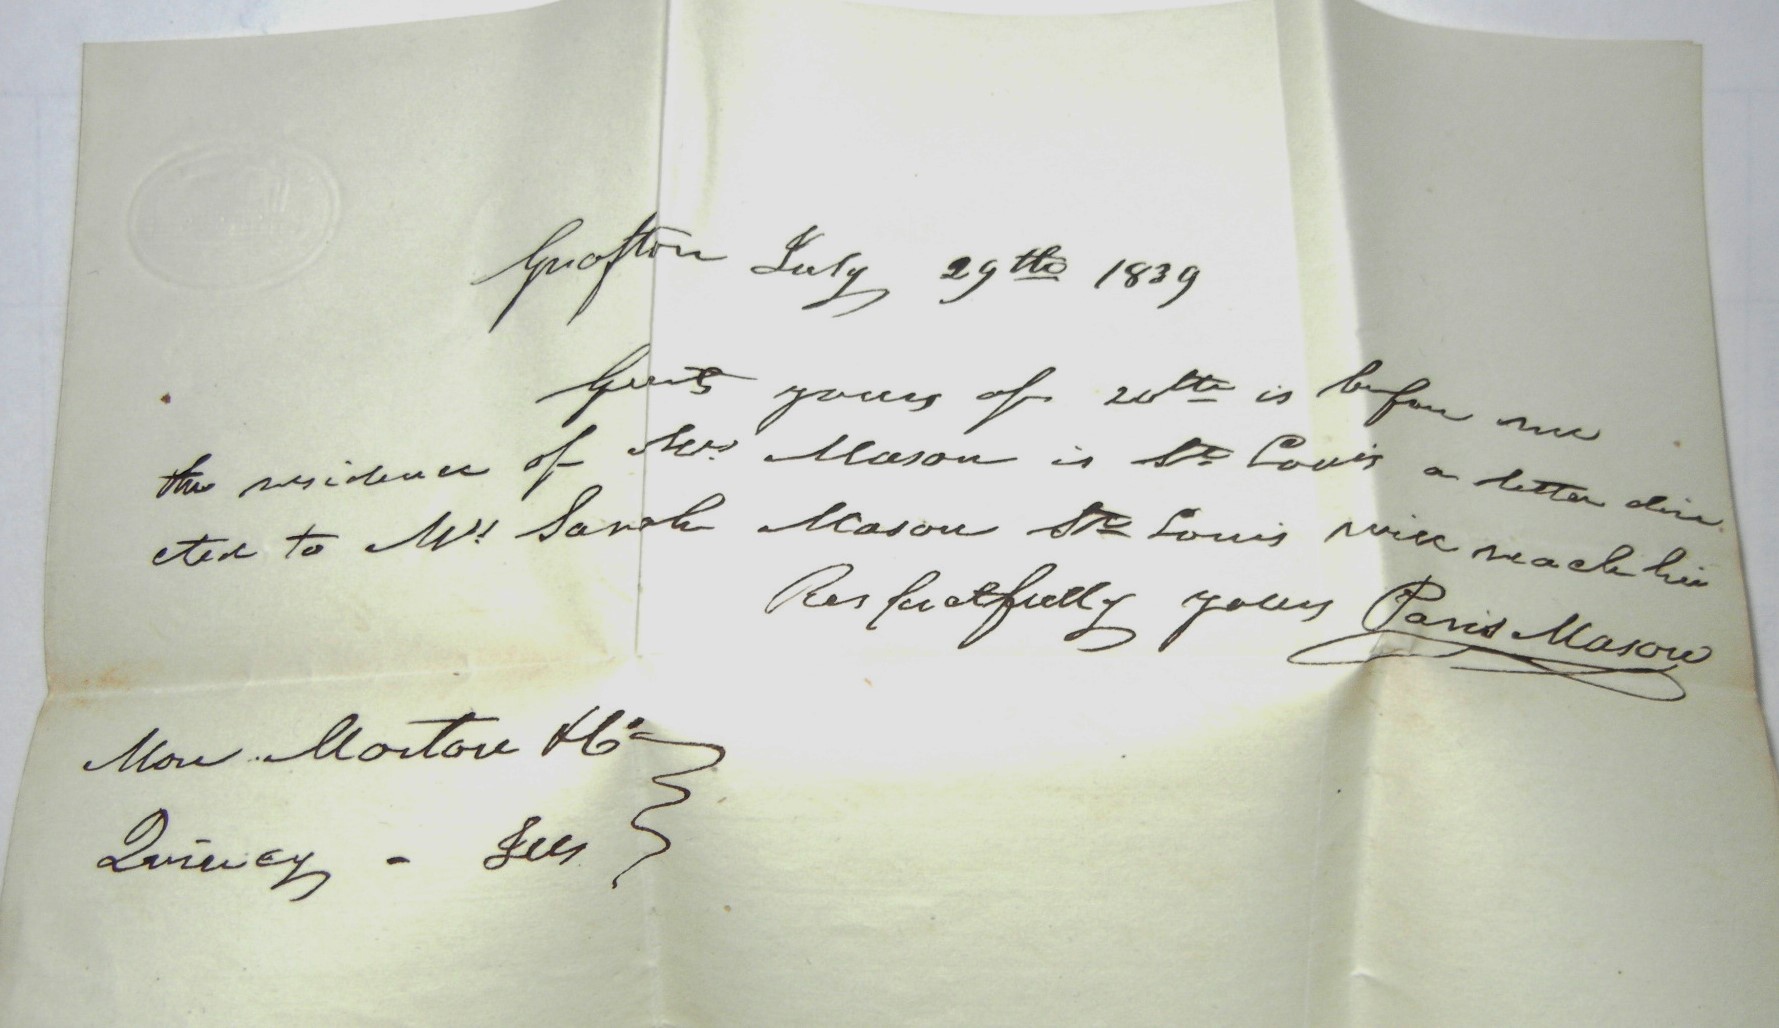 Grafton July 29th 1839
Gents yours of 20th is before me
the residence of Mrs. Mason is St Louis a letter dire
cted to Mrs Sarah Mason St Louis will reach him
Respectfully yours Paris Mason
Morton & Co
Quincy - Ills